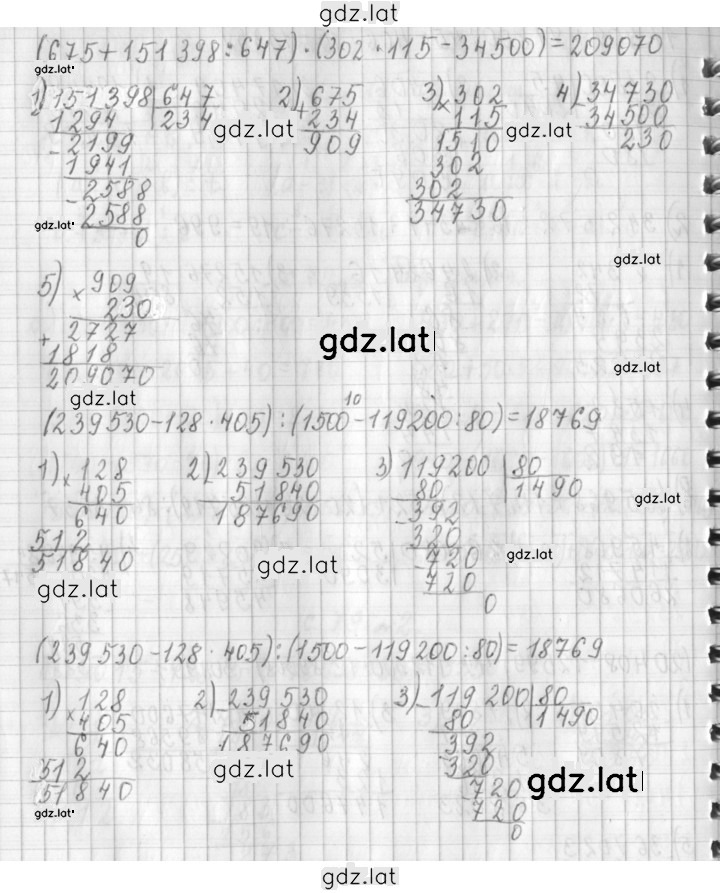 gdz.lat
(675+151398:647)·(302·115-34500)=209070
gdz.lat
1) 151398 | 647
- 1294 | 234
- 2199
1941
- 2588
2588
0
2) 675
+ 234
909
gdz.lat
3) × 302
115
1510
302
302
34730
gdz.lat
4) - 34730
34500
230
gdz.lat
gdz.lat
5) × 909
230
+ 2727
1818
209070
gdz.lat
gdz.lat
gdz.lat
10
(239530-128·405):(1500-119200:80)=18769
1) × 128
405
640
512
51840
gdz.lat
2) - 239530
51840
187690
gdz.lat
3) 119200 | 80
80 | 1490
- 392
320
- 720
720
0
gdz.lat
gdz.lat
(239530-128·405):(1500-119200:80)=18769
1) × 128
405
640
512
51840
gdz.lat
2) - 239530
51840
187690
gdz.lat
3) - 119200 | 80
80 | 1490
392
- 320
- 720
720
0
gdz.lat
gdz.lat